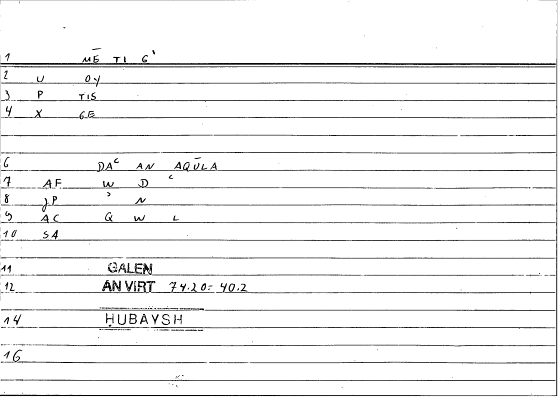 1 MĒ TI G'
2 U OY
3 P TIS
4 X GE
6 DAᶜ AN AQŪLA
7 AF W D ᶜ
8 JP ʾ N
9 AC Q W L
10 SA
11 GALEN
12 AN VIRT 74.20-40.2
14 ḤUBAYSH
16